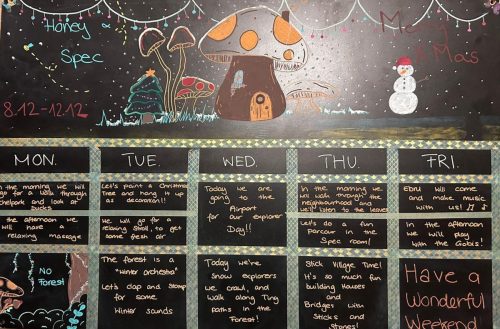 Honey &
Spec
Merry
X Mas
8.12-12.12
MON.
TUE.
WED.
THU.
FRI.
In the morning we will
go for a walk through
and look for
Ducks
the afternoon we will
have a
relaxing massage
No
Forest
Let's paint a Christmas
Tree and hang it up
as decoration!!
We will go for a
relaxing stroll, to get
some fresh air
The forest is a
"winter orchestra"
Let's clap and Stomp
for some
Winter sounds
Today we are
going to the
Airport
for our explorer
Day!!
Today we're
Snow explorers
we crawl, and
walk along Tiny
paths in the
Forest!
In the morning we
will walk through the
neighbourhood and
we'll listen to the leaves
Let's do a fun
Dance in the
Spec room!
Stick Village Time!
It's so much fun
building Houses
and
Bridges with
Sticks and
Stones!
Ebru will come
and make music
with us!
In the afternoon
we will play
with the Gobis!
Have a
Wonderful
Weekend